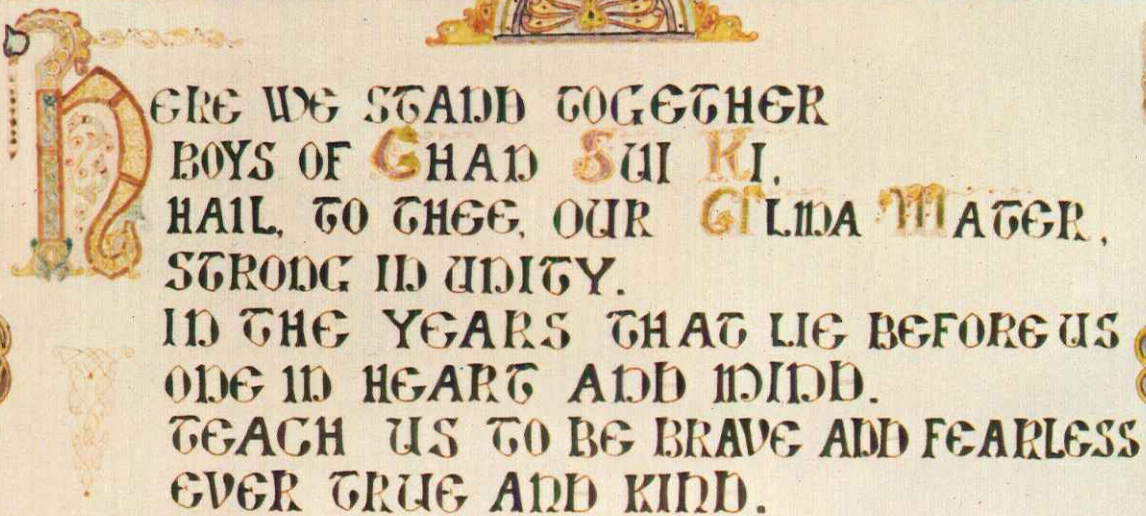 HERE WE STAND TOGETHER
BOYS OF CHAN SUI KI,
HAIL, TO THEE, OUR ALMA MATER,
STRONG IN UNITY.
IN THE YEARS THAT LIE BEFORE US
ONE IN HEART AND MIND.
TEACH US TO BE BRAVE AND FEARLESS
EVER TRUE AND KIND.